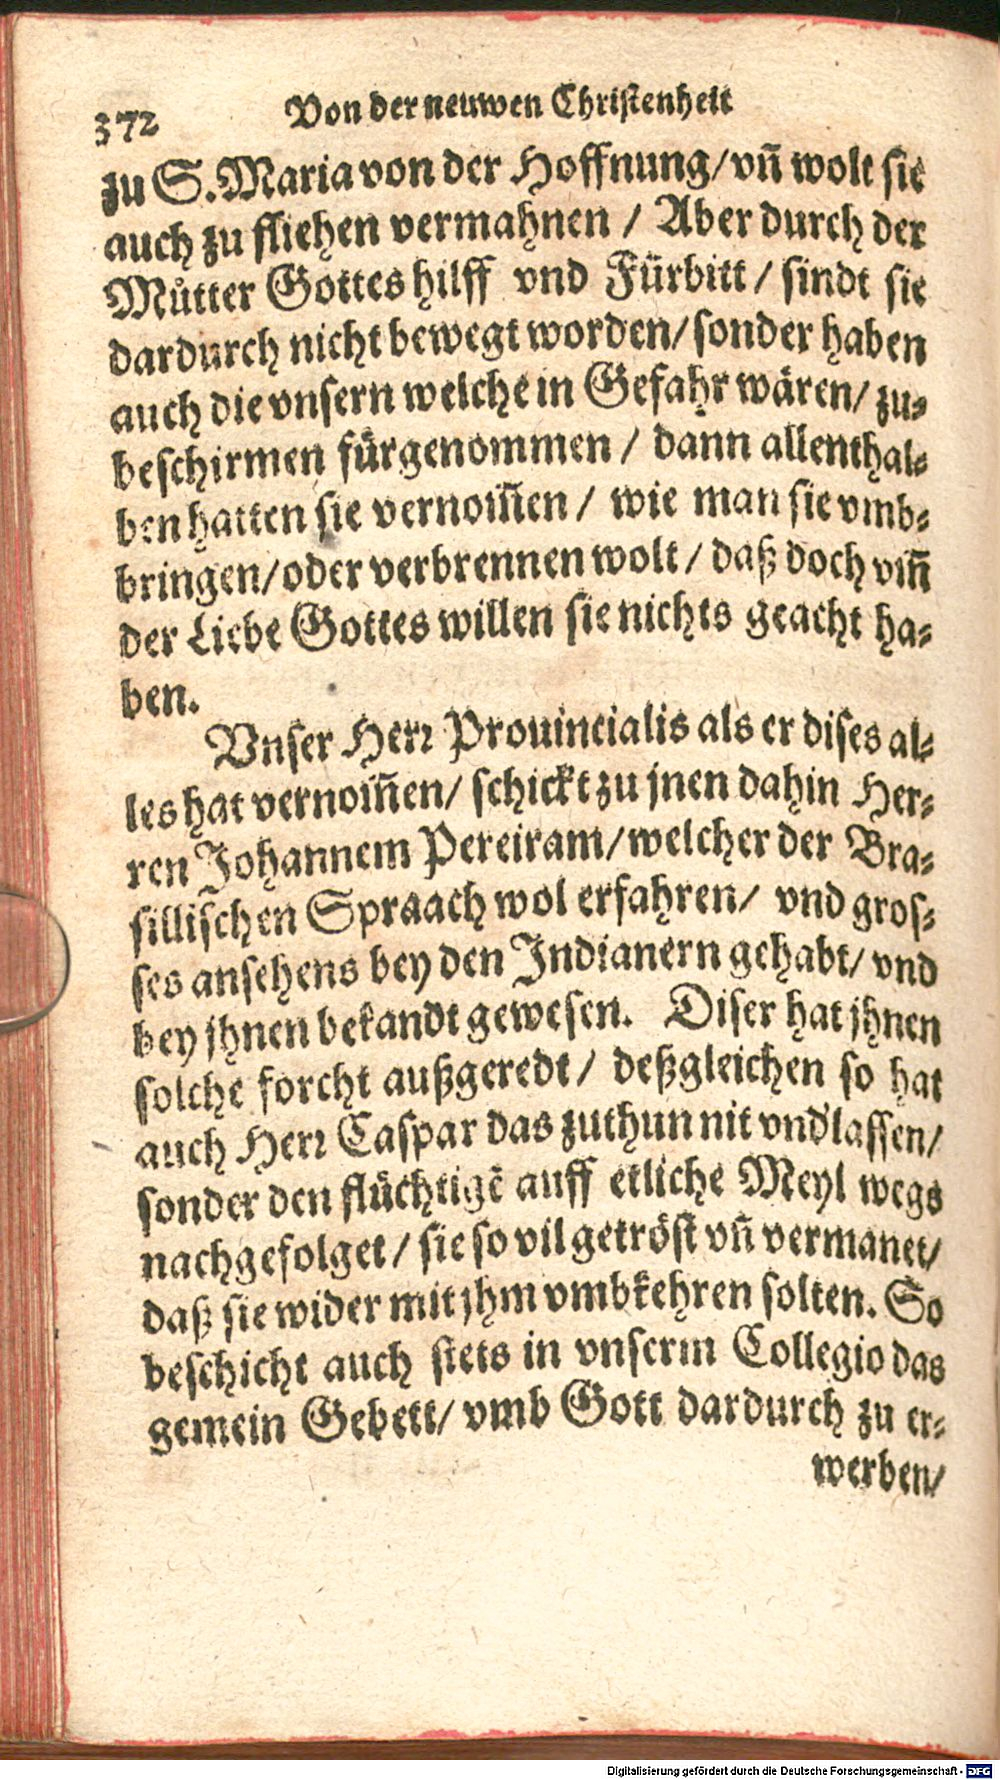 372 Von der neuwen Christenheit
zu S. Maria von der Hoffnung/ vñ wolt sie
auch zu fliehen vermahnen / Aber durch der
Můtter Gottes hilff vnd Fürbitt / sindt sie
dardurch nicht bewegt worden/ sonder haben
auch die vnsern welche in Gefahr wären/ zu-
beschirmen fürgenommen / dann allenthal-
ben hatten sie vernom̃en / wie man sie vmb-
bringen/ oder verbrennen wolt / daß doch vm̃
der Liebe Gottes willen sie nichts geacht ha-
ben.
Vnser Herr Prouincialis als er dises al-
les hat vernom̃en/ schickt zu jnen dahin Her-
ren Johannem Pereiram/ welcher der Bra-
sillischen Spraach wol erfahren/ vnd gros-
ses ansehens bey den Indianern gehabt/ vnd
bey jhnen bekandt gewesen. Diser hat jhnen
solche forcht außgeredt / deßgleichen so hat
auch Herr Caspar das zuthun nit vnd'lassen/
sonder den flüchtigẽ auff etliche Meyl wegs
nachgefolget / sie so vil getröst vñ vermanet/
daß sie wider mit jhm vmbkehren solten. So
beschicht auch stets in vnserm Collegio das
gemein Gebett/ vmb Gott dardurch zu er-
werben/
Digitalisierung gefördert durch die Deutsche Forschungsgemeinschaft - DFG